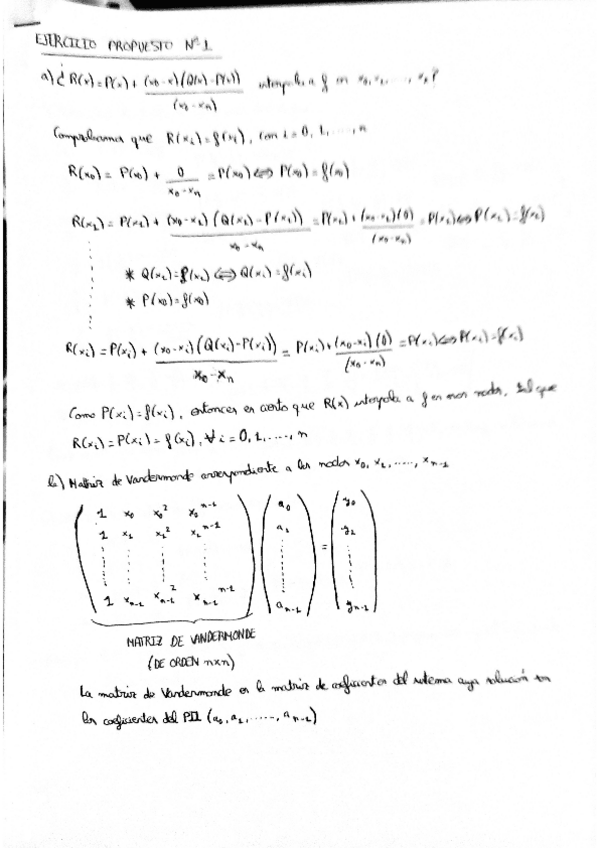 EJERCICIO PROPUESTO Nº 1
a) ¿R(x) = P(x) + (x₀-x)(Q(x)-P(x)) / (x₀-xₙ) interpola a f en x₀, x₁, ....., xₙ?
Comprobamos que R(xᵢ) = f(xᵢ), con i = 0, 1, ....., n
R(x₀) = P(x₀) + 0 / (x₀-xₙ) = P(x₀) ⟺ P(x₀) = f(x₀)
R(x₁) = P(x₁) + (x₀-x₁)(Q(x₁)-P(x₁)) / (x₀-xₙ) = P(x₁) + (x₀-x₁)(0) / (x₀-xₙ) = P(x₁) ⟺ P(x₁) = f(x₁)
* Q(x₁) = f(x₁) ⟺ Q(x₁) = f(x₁)
* P(x₀) = f(x₀)
R(xᵢ) = P(xᵢ) + (x₀-xᵢ)(Q(xᵢ)-P(xᵢ)) / (x₀-xₙ) = P(xᵢ) + (x₀-xᵢ)(0) / (x₀-xₙ) = P(xᵢ) ⟺ P(xᵢ) = f(xᵢ)
Como P(xᵢ) = f(xᵢ), entonces es cierto que R(x) interpola a f en esos nodos, tal que
R(xᵢ) = P(xᵢ) = f(xᵢ), ∀ i = 0, 1, ....., n
b) Matriz de Vandermonde correspondiente a los nodos x₀, x₁, ....., xₙ₋₁
1 x₀ x₀² x₀ⁿ⁻¹ a₀ y₀
1 x₁ x₁² x₁ⁿ⁻¹ a₁ = y₁
1 xₙ₋₁ xₙ₋₁² xₙ₋₁ⁿ⁻¹ aₙ₋₁ yₙ₋₁
MATRIZ DE VANDERMONDE
(DE ORDEN nxn)
La matriz de Vandermonde es la matriz de coeficientes del sistema cuya solución son
los coeficientes del PIL (a₀, a₁, ....., aₙ₋₁)